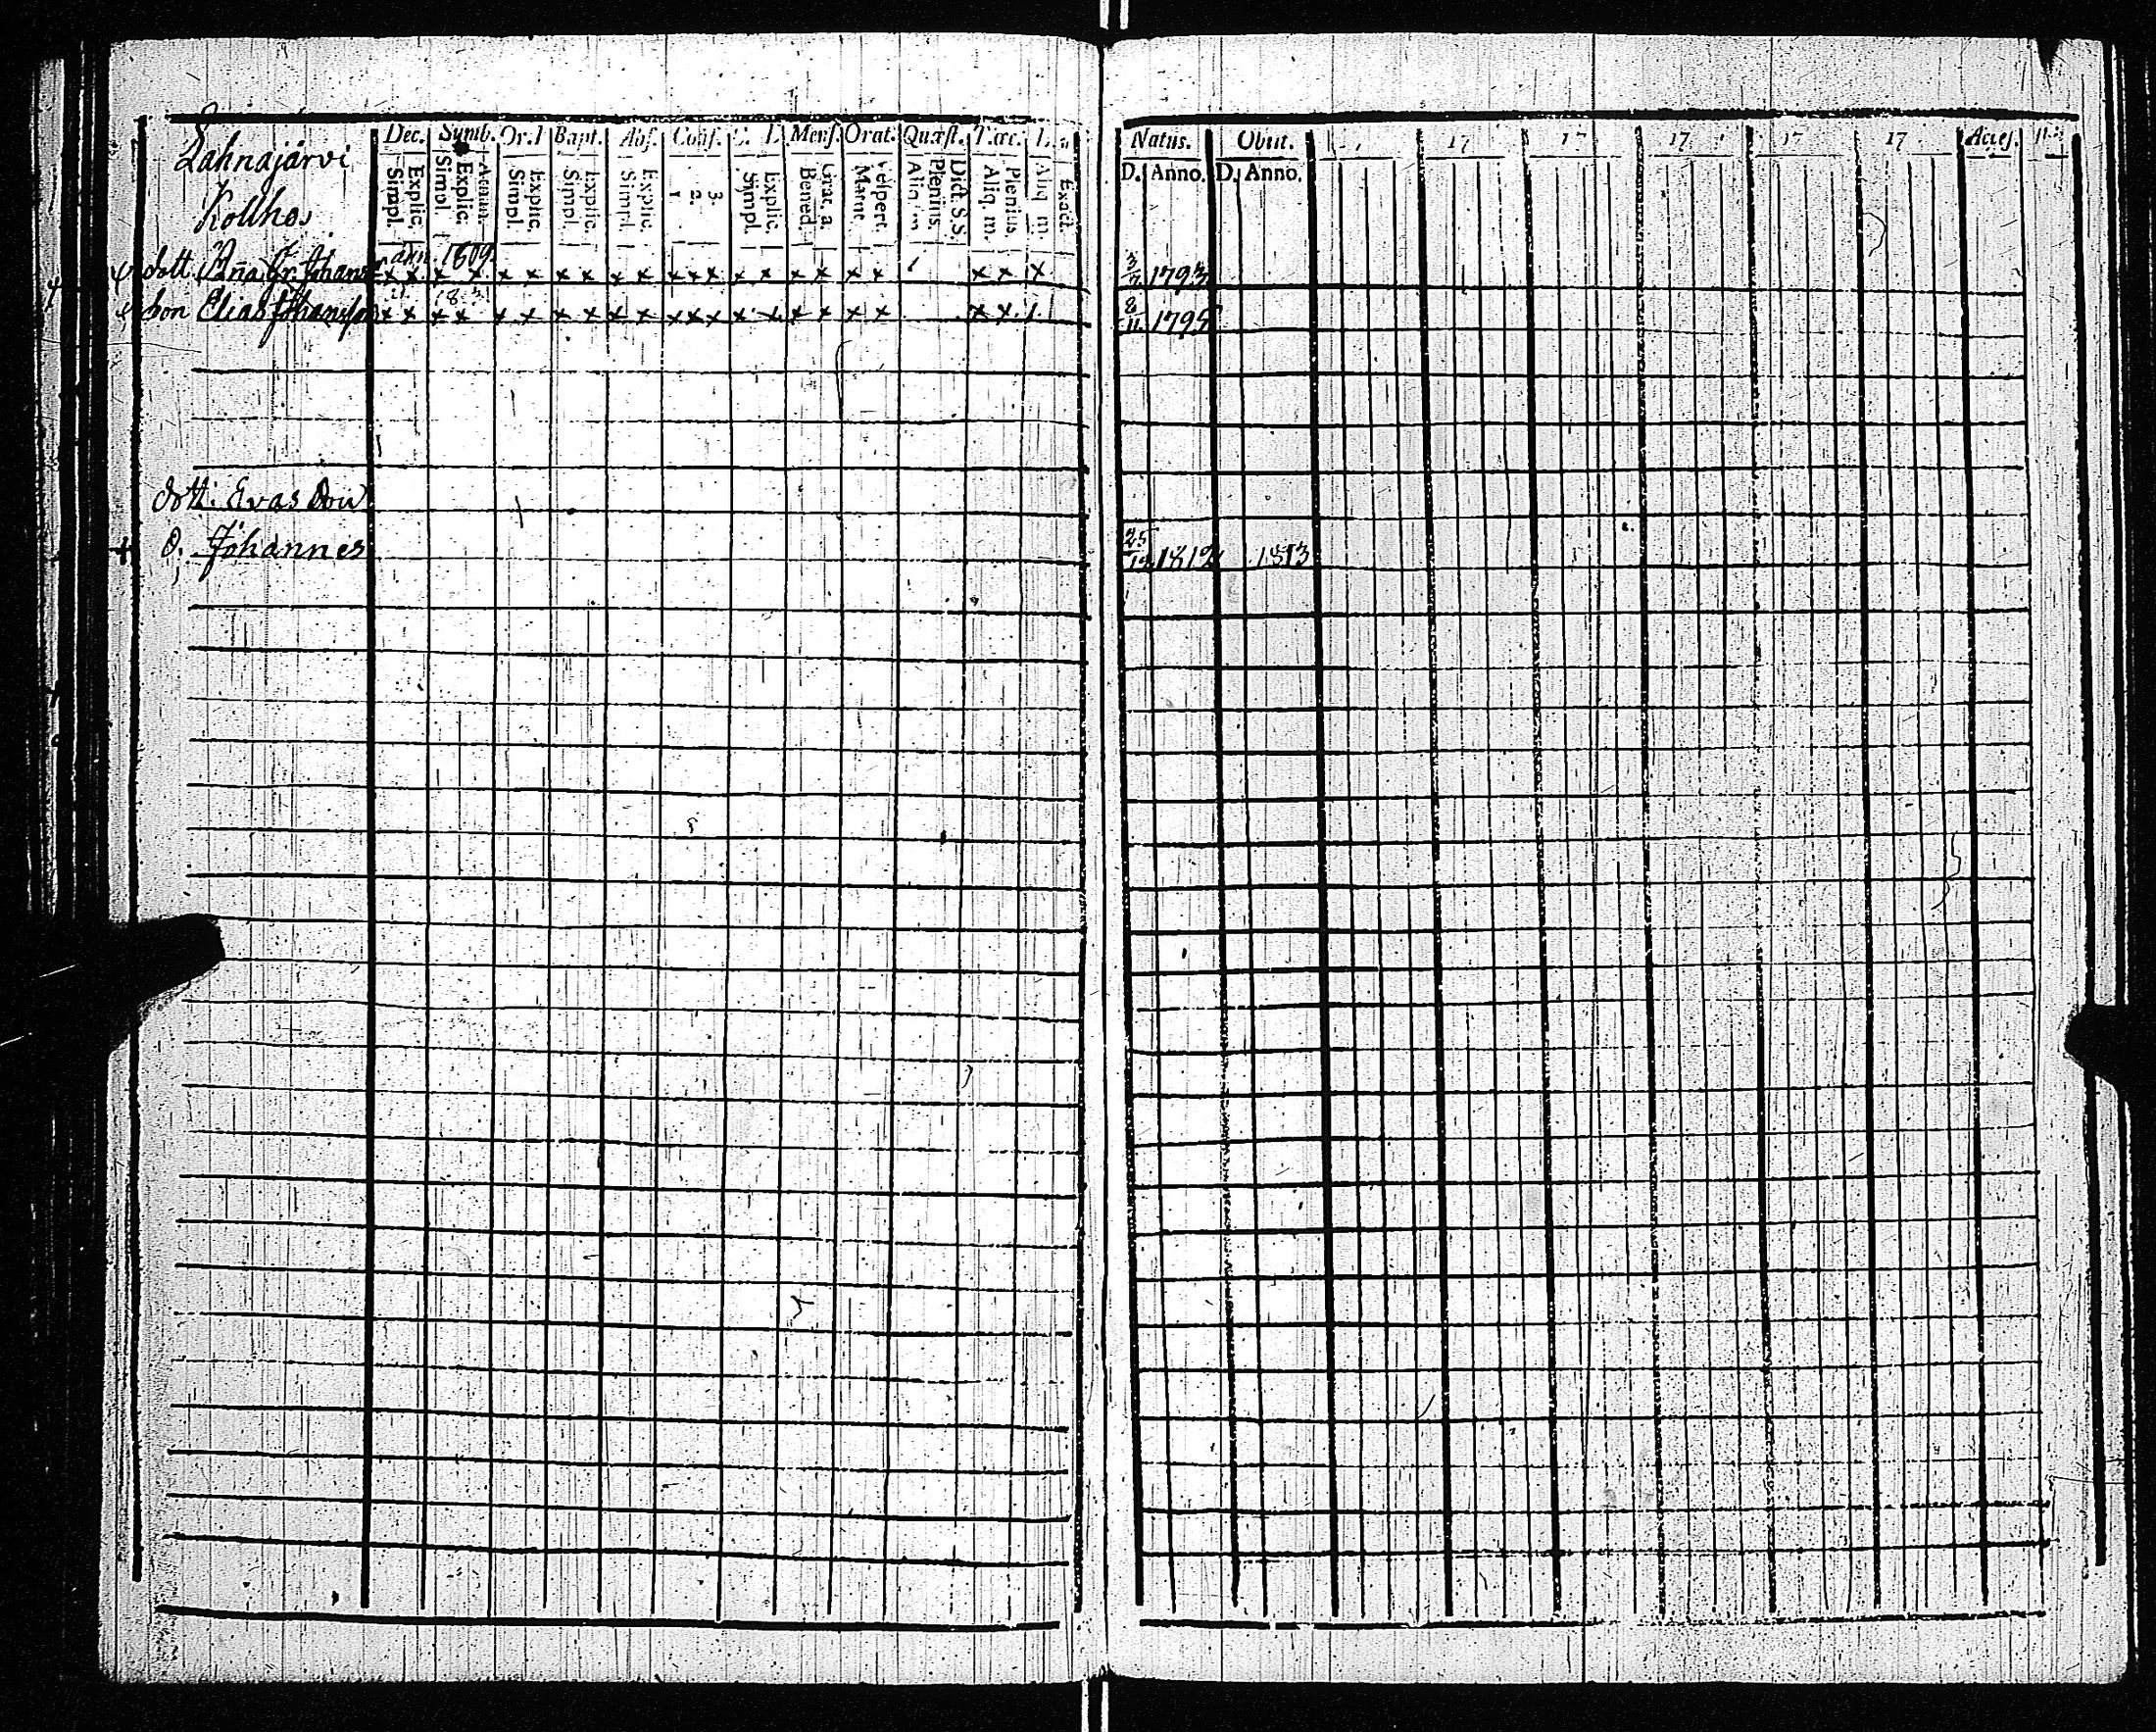 Lahnajärvi
Kollhos
Dec. Symb. Or. D Bapt. Abs. Conf. C. D. Mens. Orat. Quæst. T. œc. L.
Simpl. Explic. Simpl. Explic. Athan. Simpl. Explic. Simpl. Explic. Simpl. Explic. 1 2. 3. Simpl. Explic. Bened. Grat. a. Matut. Vespert. Aliq. m Plenius. Dict. S.S. Aliq. m. Plenius. Aliq m. Exact.
Natus. Obiit. 17 17 17 17 17 Acces.
D. Anno. D. Anno.
adm 1809
dott Anna Gr. Johansd x x x x x x x x x x x x x x x x x x x x x 3/7 1793
18 3
son Elias Johansson x x x x x x x x x x x x x x x x x x x x 8/11 1795
dott. Evas
o. Johannes 25/12 1812 1813